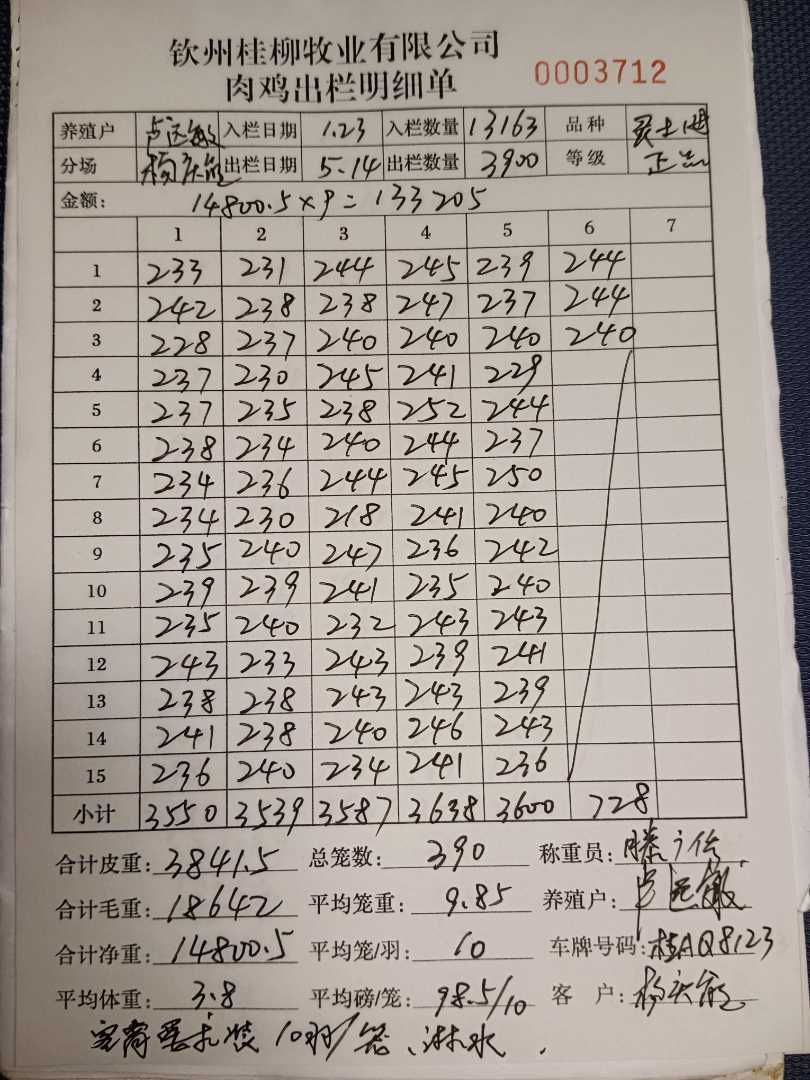 钦州桂柳牧业有限公司
肉鸡出栏明细单 0003712
养殖户 卢远敏 入栏日期 1.23 入栏数量 13163 品种
分场 出栏日期 5.14 出栏数量 3900 等级 正品
金额: 14800.5×9=133205
1 2 3 4 5 6 7
1 233 231 244 245 239 244
2 242 238 238 247 237 244
3 228 237 240 240 240 240
4 237 230 245 241 229
5 237 235 238 252 244
6 238 234 240 244 237
7 234 236 244 245 250
8 234 230 218 241 240
9 235 240 247 236 242
10 239 239 241 235 240
11 235 240 232 243 243
12 243 233 243 239 241
13 238 238 243 243 239
14 241 238 240 246 243
15 236 240 234 241 236
小计 3550 3539 3587 3638 3600 728
合计皮重: 3841.5 总笼数: 390 称重员:
合计毛重: 18642 平均笼重: 9.85 养殖户: 卢远敏
合计净重: 14800.5 平均笼/羽: 10 车牌号码: 桂AQ8123
平均体重: 3.8 平均磅/笼: 98.5/10 客户:
装10羽/笼、淋水.